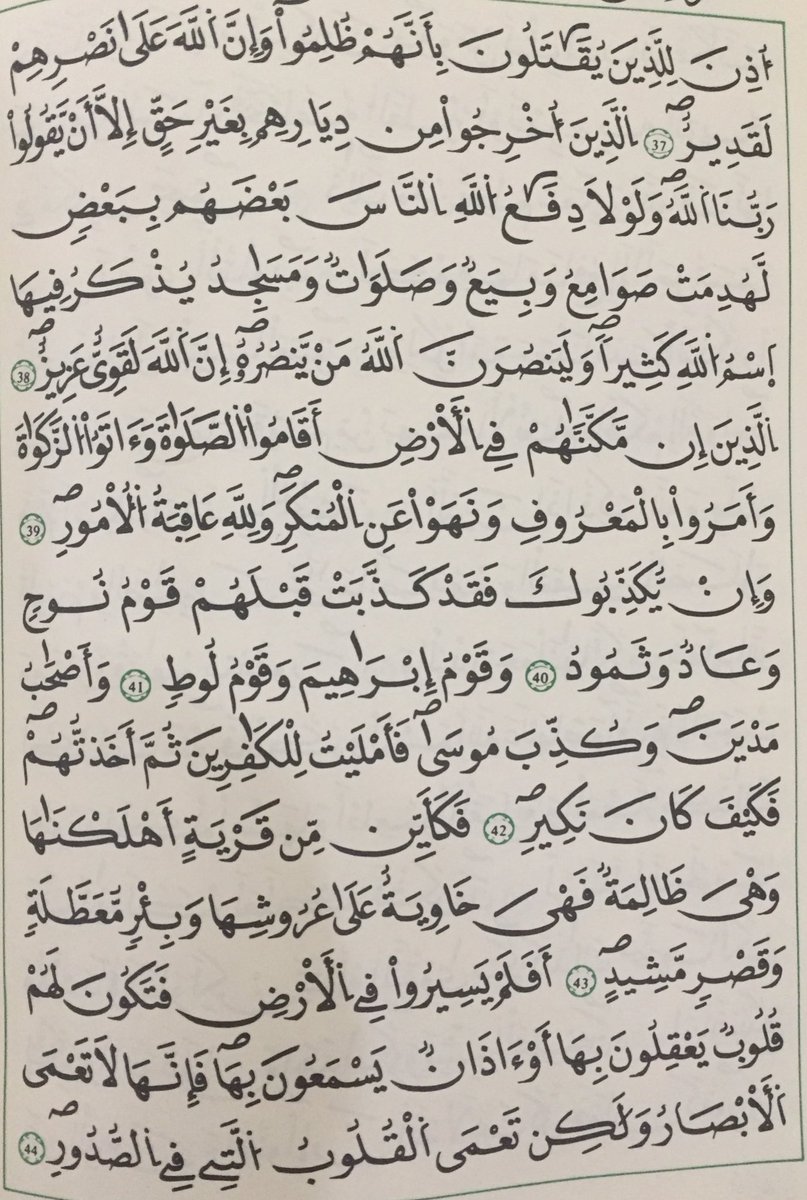 اُذِنَ لِلَّذِينَ يُقَٰتَلُونَ بِأَنَّهُمْ ظُلِمُواْ وَإِنَّ اَ۬للَّهَ عَلَىٰ نَصْرِهِمْ
لَقَدِيرٌۖ 37 اِ۬لذِينَ أُخْرِجُواْ مِن دِيَٰرِهِم بِغَيْرِ حَقٍّ اِلَّآ أَنْ يَّقُولُواْ
رَبُّنَا اَ۬للَّهُۖ وَلَوْلَا دِفَٰعُ اُ۬للَّهِ اِ۬لنَّاسَ بَعْضَهُم بِبَعْضٍ
لَّهُدِمَتْ صَوَٰمِعُ وَبِيَعٌ وَصَلَوَٰتٌ وَمَسَٰجِدُ يُذْكَرُ فِيهَا
اَ۪سْمُ اُ۬للَّهِ كَثِيراًۖ وَلَيَنصُرَنَّ اَ۬للَّهُ مَنْ يَّنصُرُهُۥٓۖ إِنَّ اَ۬للَّهَ لَقَوِيٌّ عَزِيزٌۖ 38
اِ۬لذِينَ إِن مَّكَّنَّٰهُمْ فِے اِ۬لَارْضِ أَقَامُواْ اُ۬لصَّلَوٰةَ وَءَاتَوُاْ اُ۬لزَّكَوٰةَ
وَأَمَرُواْ بِالْمَعْرُوفِ وَنَهَوْاْ عَنِ اِ۬لْمُنكَرِۖ وَلِلهِ عَٰقِبَةُ اُ۬لُامُورِۖ 39
وَإِنْ يُّكَذِّبُوكَ فَقَدْ كَذَّبَتْ قَبْلَهُمْ قَوْمُ نُوحٍ
وَعَادٌ وَثَمُودُ 40 وَقَوْمُ إِبْرَٰهِيمَ وَقَوْمُ لُوطٍ 41 وَأَصْحَٰبُ
مَدْيَنَۖ وَكُذِّبَ مُوسَىٰۖ فَأَمْلَيْتُ لِلْكَٰفِرِينَ ثُمَّ أَخَذتُّهُمْۖ
فَكَيْفَ كَانَ نَكِيرِۖ 42 فَكَأَيِّن مِّن قَرْيَةٍ أَهْلَكْنَٰهَا
وَهْىَ ظَالِمَةٌ فَهْىَ خَاوِيَةٌ عَلَىٰ عُرُوشِهَا وَبِئْرٍ مُّعَطَّلَةٍ
وَقَصْرٍ مَّشِيدٍۖ 43 أَفَلَمْ يَسِيرُواْ فِے اِ۬لَارْضِ فَتَكُونَ لَهُمْ
قُلُوبٌ يَعْقِلُونَ بِهَآ أَوَ ءَاذَانٌ يَسْمَعُونَ بِهَاۖ فَإِنَّهَا لَا تَعْمَى
اَ۬لَابْصَٰرُ وَلَٰكِن تَعْمَى اَ۬لْقُلُوبُ اُ۬لتِے فِے اِ۬لصُّدُورِۖ 44